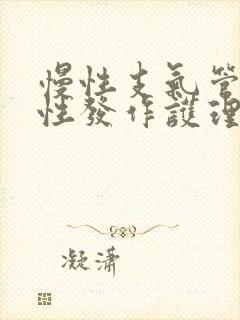 慢性支氣管
性發作護理
凝瀟